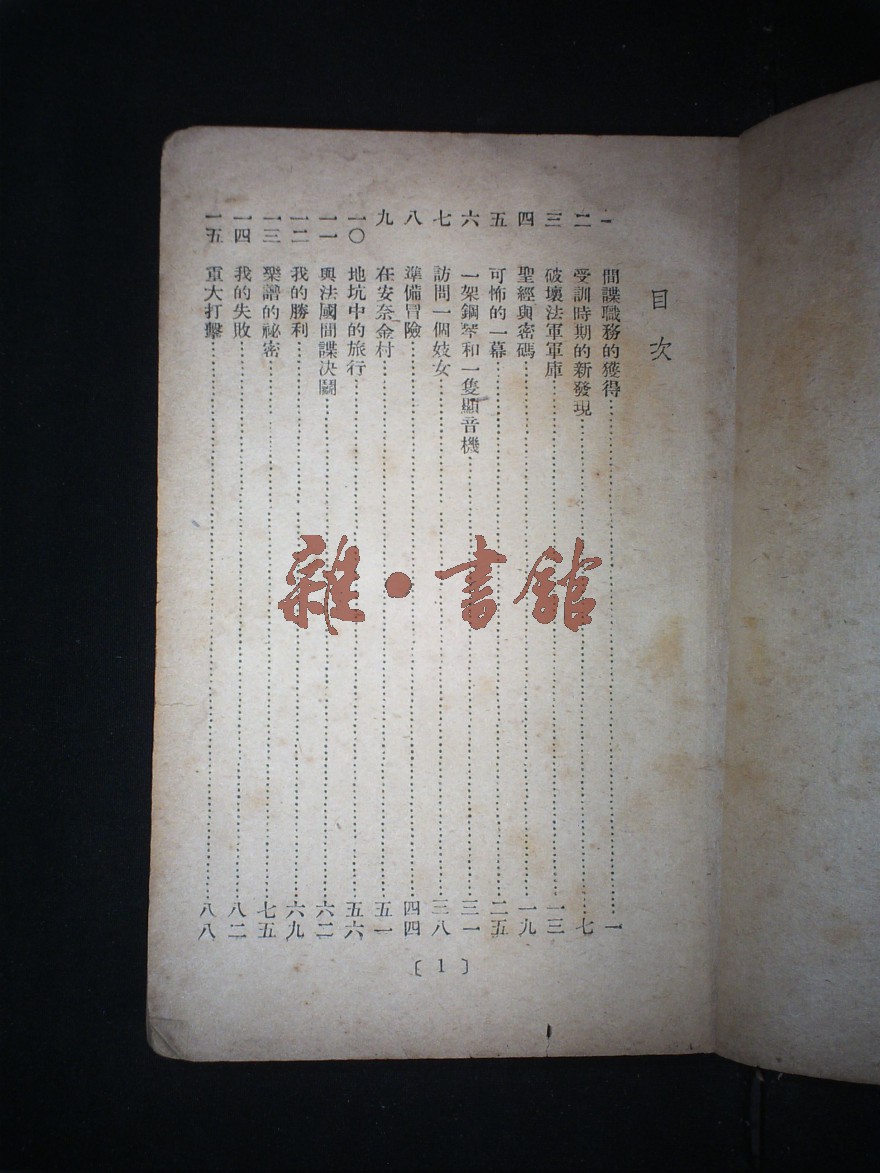 目次
一 間諜職務的獲得……一
二 受訓時期的新發現……七
三 破壞法軍軍庫……一三
四 聖經與密碼……一九
五 可怖的一幕……二五
六 一架鋼琴和一隻顯音機……三一
七 訪問一個妓女……三八
八 準備冒險……四四
九 在安奈金村……五一
一〇 地坑中的旅行……五六
一一 與法國間諜决鬭……六二
一二 我的勝利……六九
一三 樂譜的祕密……七五
一四 我的失敗……八二
一五 重大打擊……八八
〔1〕
雜·書館